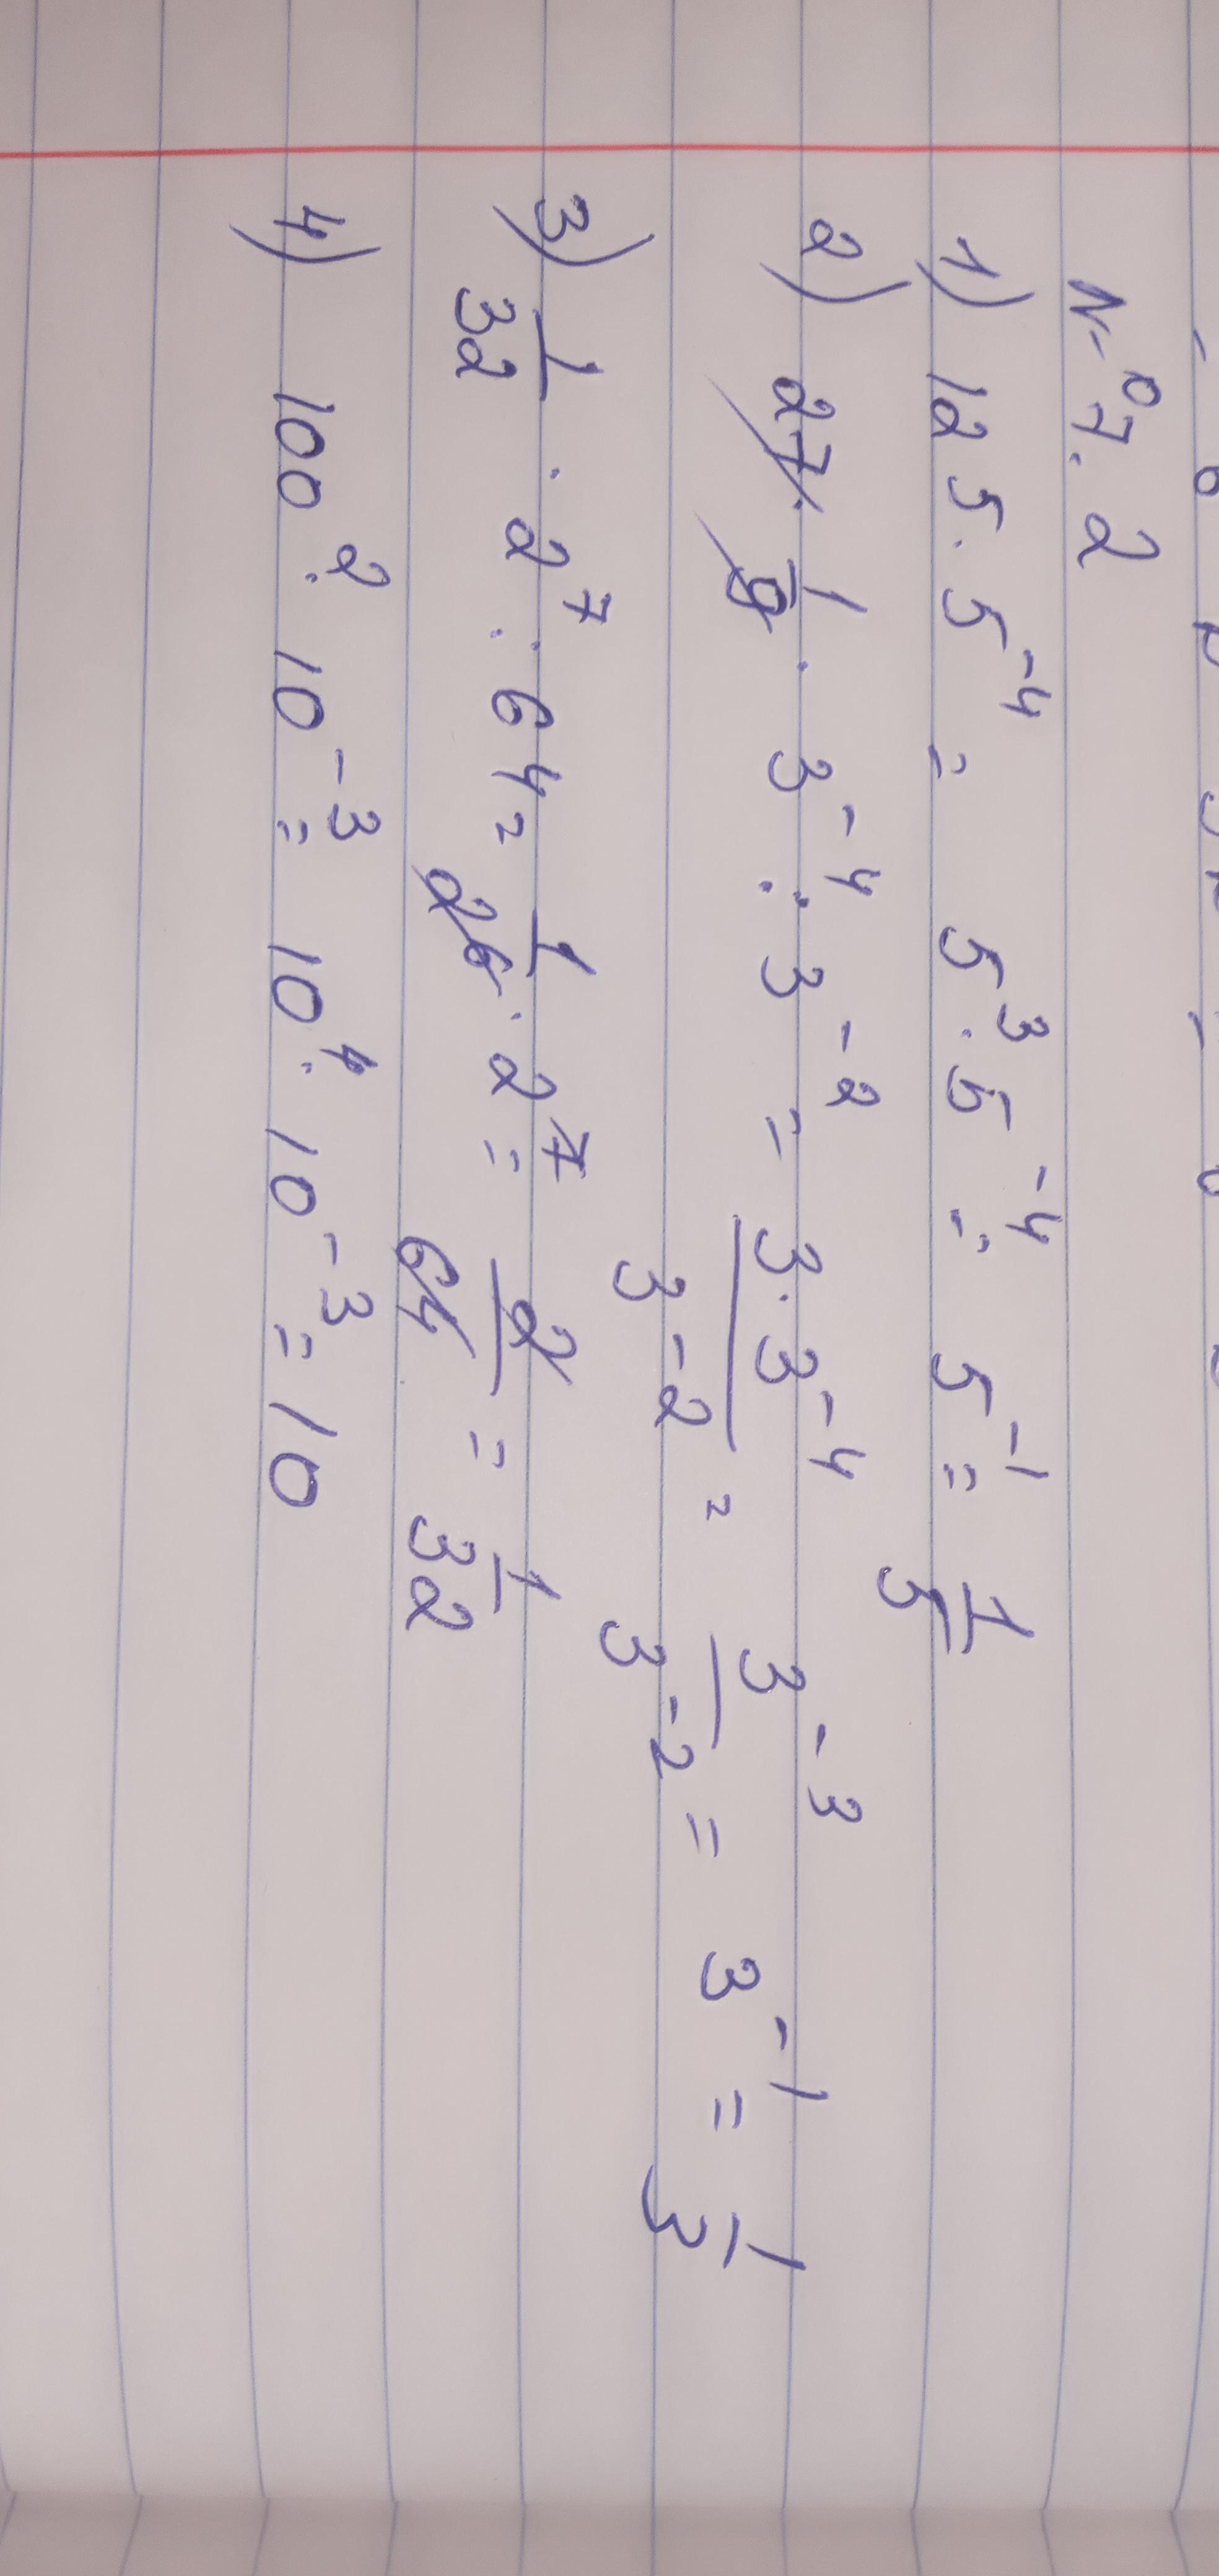 № 7.2
1) 125 · 5⁻⁴ = 5³ · 5⁻⁴ = 5⁻¹ = 1/5
2) 27 · 1/9 · 3⁻⁴ : 3⁻² = 3 · 3⁻⁴ / 3⁻² = 3⁻³ / 3⁻² = 3⁻¹ = 1/3
3) 1/32 · 2⁷ : 64 = 1/26 · 2⁷ = 2/64 = 1/32
4) 100² · 10⁻³ = 10⁴ · 10⁻³ = 10